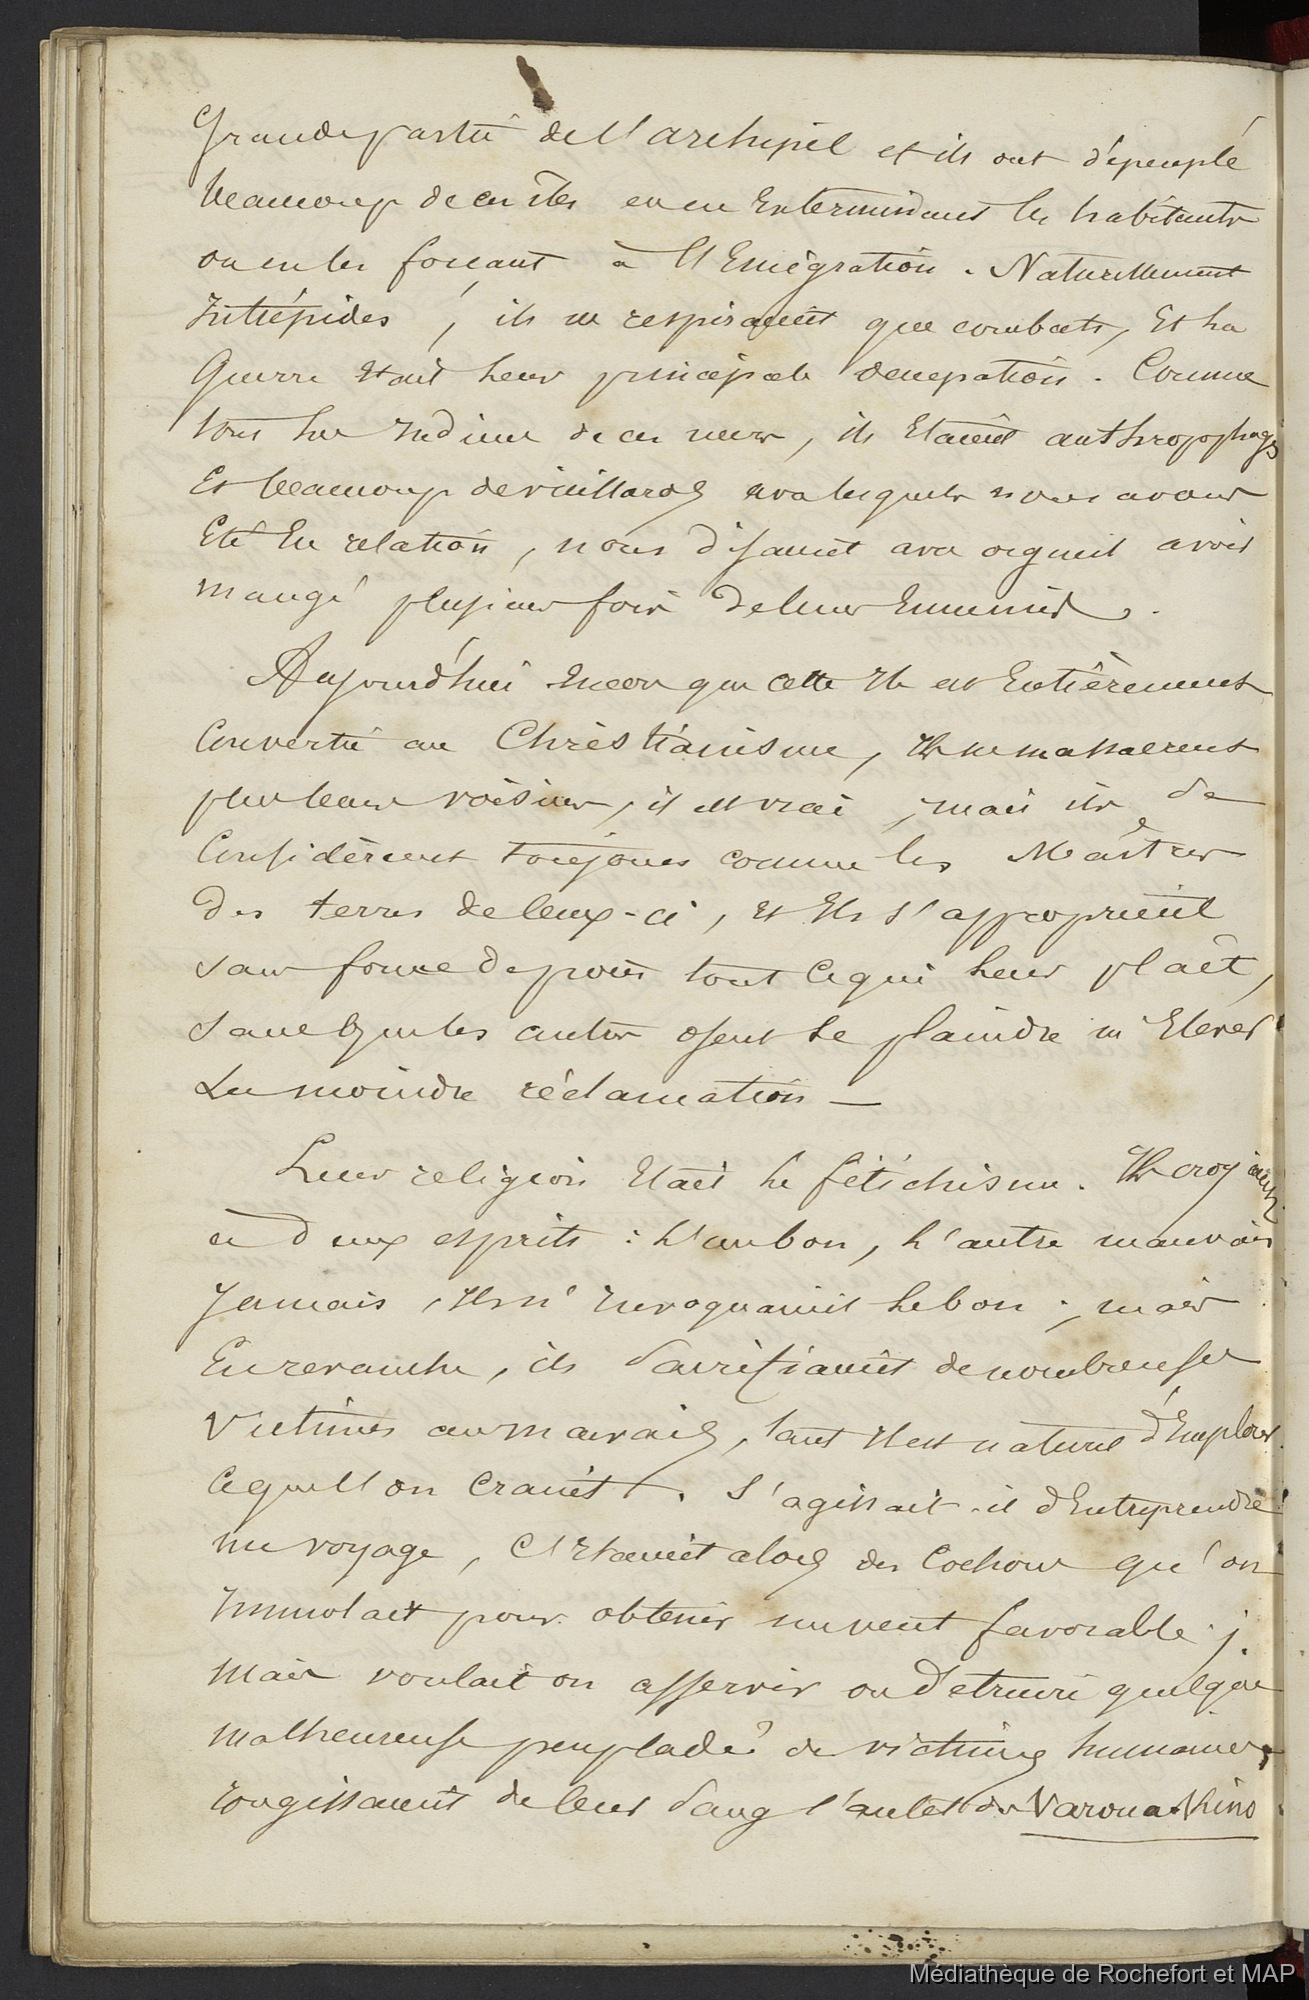 Grande partie de l'archipel et ils ont dépeuplé
beaucoup de ces îles en en Exterminant les habitants
ou en les forçant à l'Emigration. Naturellement
Intrépides, ils ne respiraient que combats, Et la
Guerre Etait leur principale occupation. Comme
tous les Indiens de ces mers, ils Etaient anthropophages
Et beaucoup de vieillards avec lesquels nous avons
Eté En relation, nous disaient avec orgueil avoir
mangé plusieurs fois de leurs Ennemis.
Aujourd'hui Encore que cette Ile est Entièrement
Convertie au Christianisme, Ils ne massacrent
plus leurs voisins, il est vrai, mais ils se
Considèrent toujours comme les Maîtres
des terres de ceux-ci, et Ils s'approprient
sans forme de procès tout ce qui leur plaît,
sans que les autres osent se plaindre ni Elever
La moindre réclamation —
Leur religion Etait le fétichisme. Ils croyaient
à deux esprits : l'un bon, l'autre mauvais
Jamais, Ils n'Invoquaient le bon ; mais
En revanche, ils sacrifiaient de nombreuses
Victimes au mauvais, tant Il est naturel d'Implorer
ce que l'on craint. S'agissait-il d'Entreprendre
un voyage, C'Etaient alors des Cochons qu'on
Immolait pour obtenir un vent favorable ;
mais voulait on asservir ou détruire quelque
malheureuse peuplade de victimes humaines,
rougissaient de leur sang l'autel de Varoua-Kino
Médiathèque de Rochefort et MAP